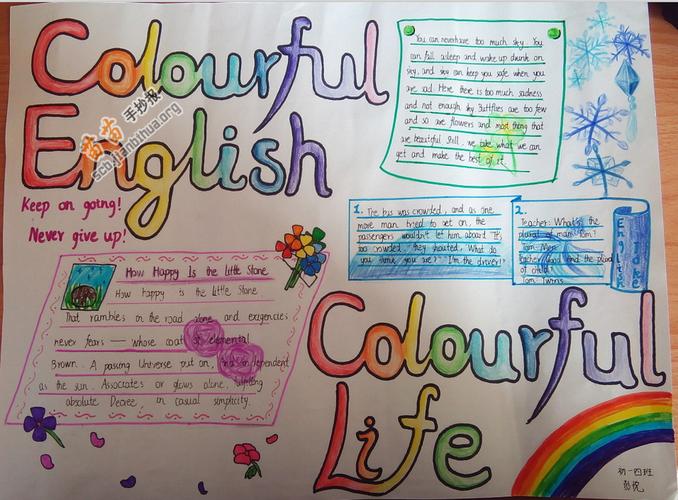 Colourful
English
苗苗手抄报
scal.jianbihua.org
Keep on going!
Never give up!
You can neverhave too much sky. You
can fall asleep and wake up drunk on
sky, and sky can keep you safe when you
are sad. Here there is too much sadness
and not enough sky Butflies are too few
and so are flowers and most thing that
are beautiful Still, we take what we can
get and make the best of it.
1. The bus was crowded, and as one
more man tried to get on, the
passengers wouldn't let him aboard It's
too crowded, they shouted, What do
you think you are? I'm the driver!
2.
Teacher: What's the
plural of man, Tom?
Tom: Men
Teacher: And the plural
of child?
Tom: Twins
English
Joke
How Happy Is the Little Stone
How happy is the Little Stone
That rambles on the road alone and exigencies
never fears — whose coat of elemental
Brown. A passing Universe put on, independent
as the sun. Associates or glows alone,
absolute Decree, in casual simplicity.
Colourful
Life
初一四班